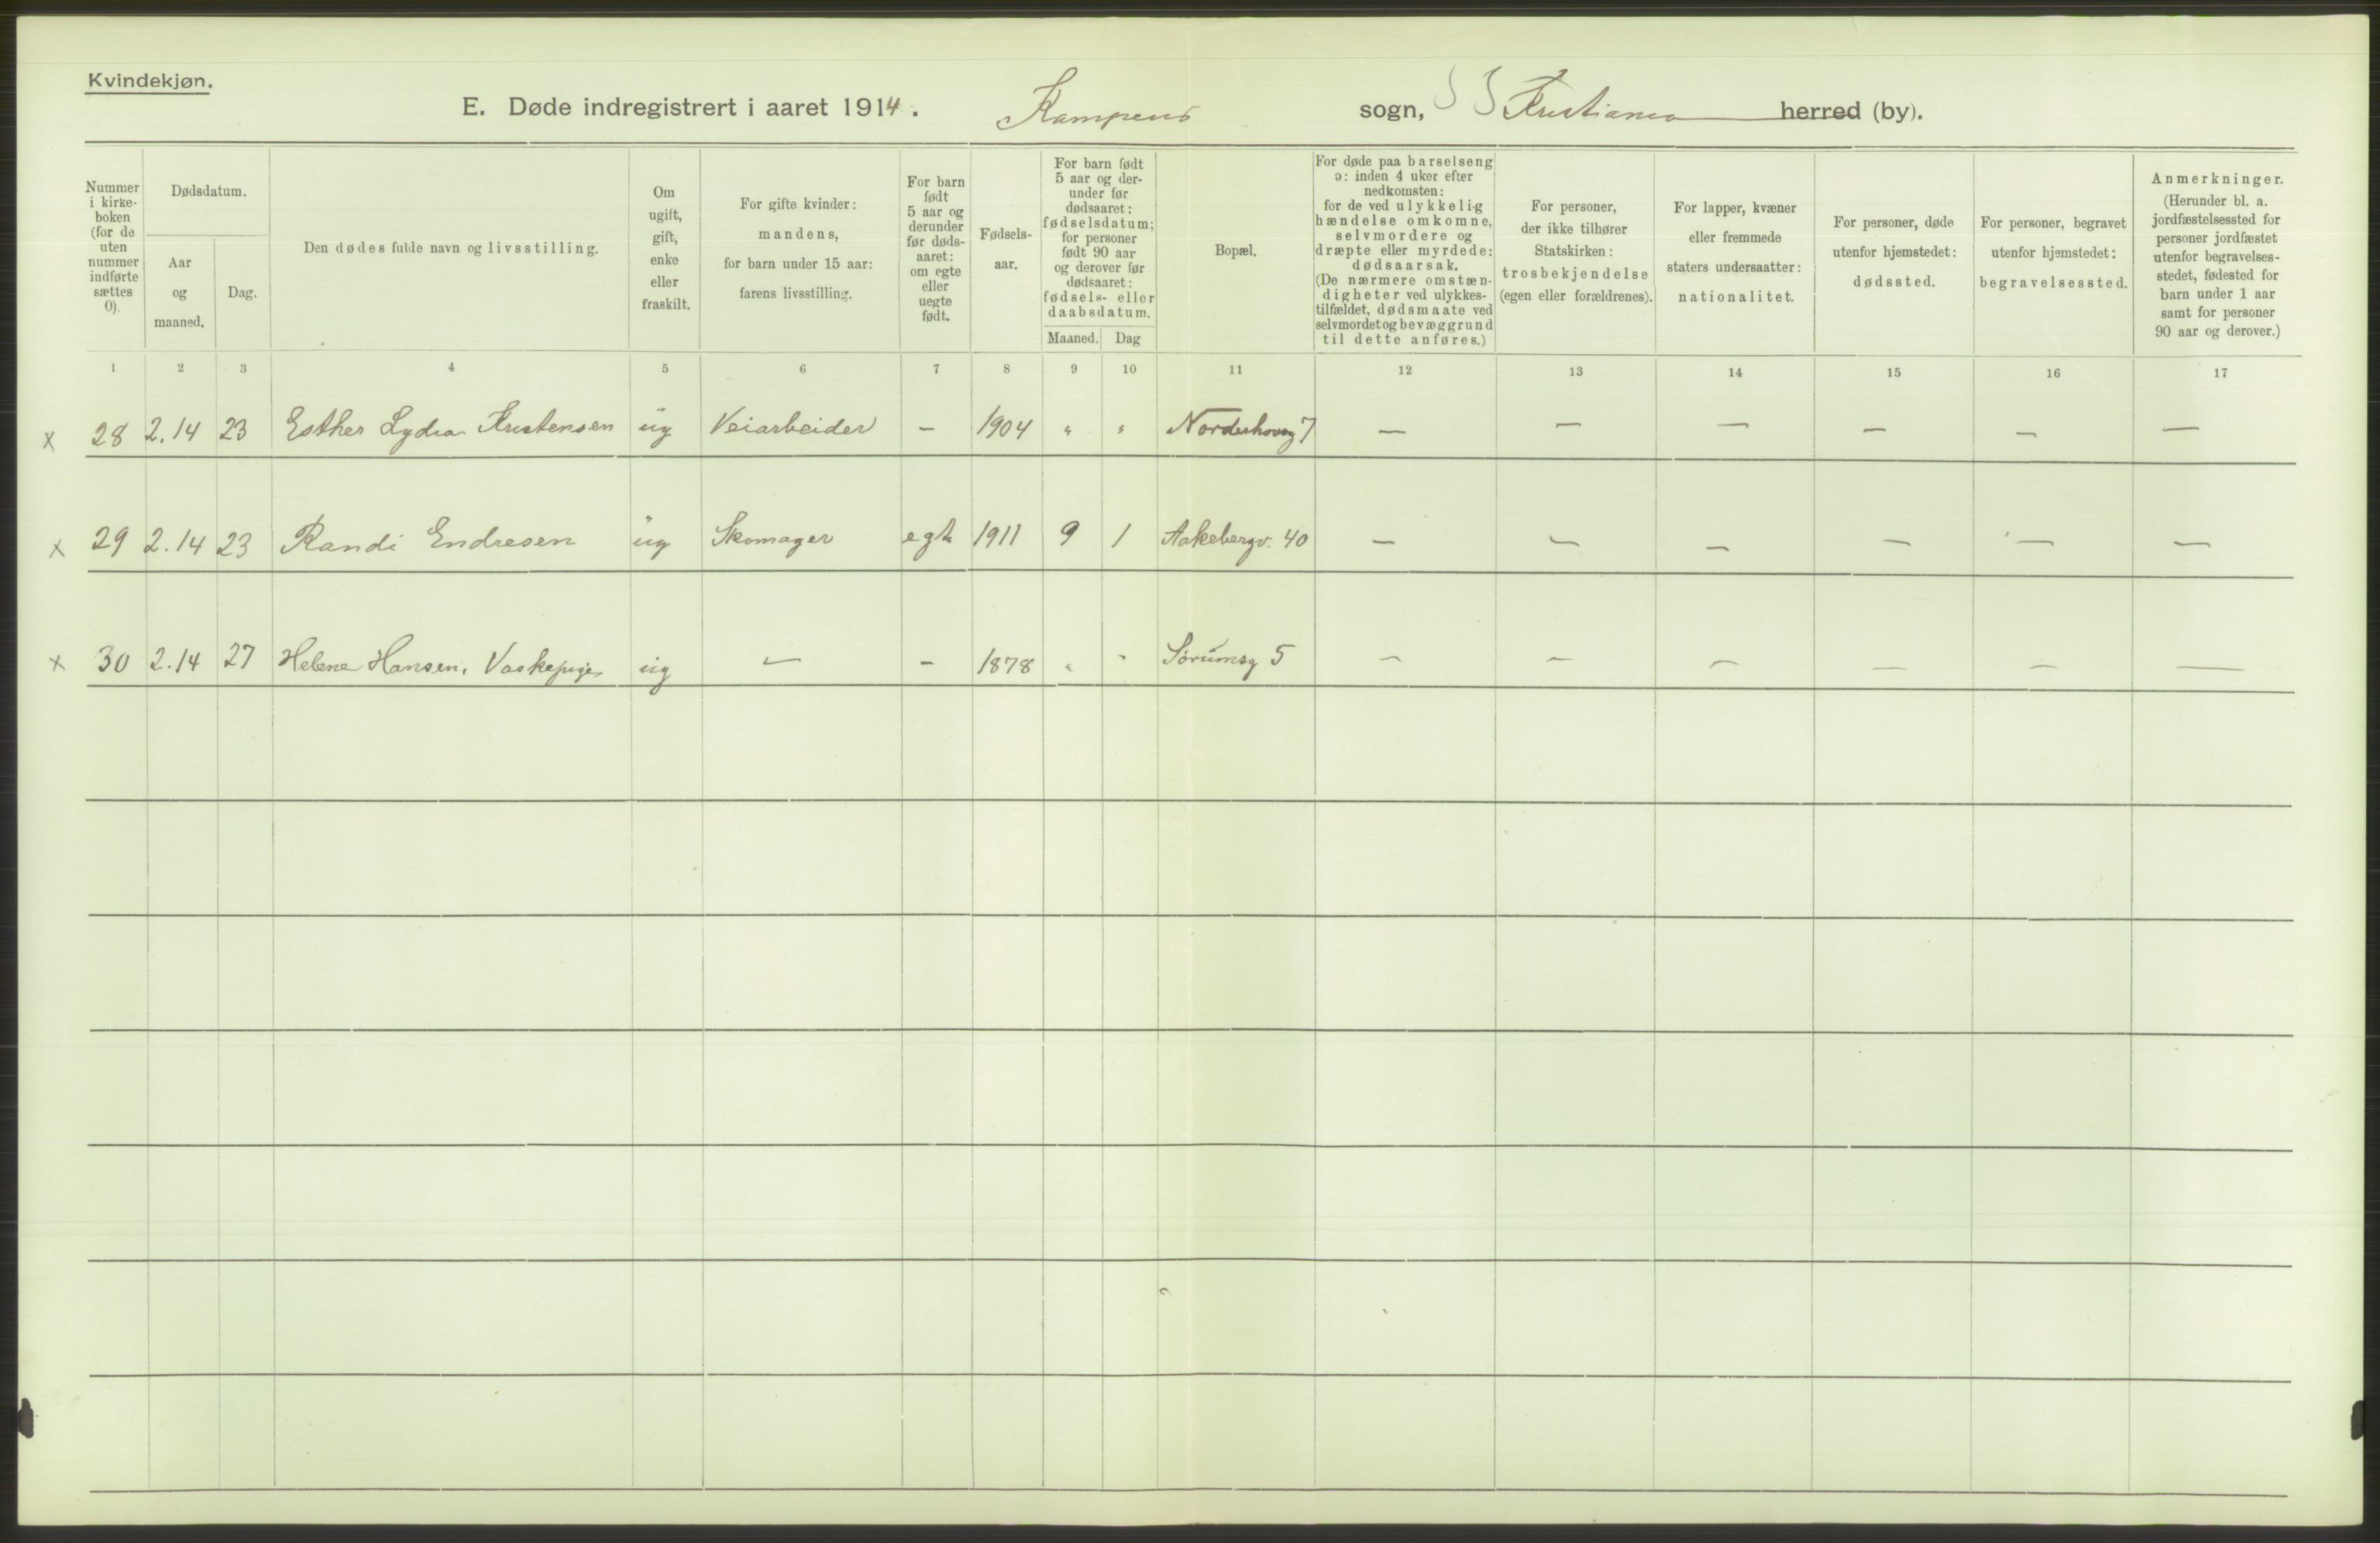 Kvindekjøn.
E. Døde indregistrert i aaret 1914. Kampens sogn, Kristiania herred (by).
Nummer i kirke-boken (for de uten nummer indførte sættes 0).
Dødsdatum.
Aar og maaned.
Dag.
Den dødes fulde navn og livsstilling.
Om ugift, gift, enke eller fraskilt.
For gifte kvinder: mandens, for barn under 15 aar: farens livsstilling.
For barn født 5 aar og derunder før døds-aaret: om egte eller uegte født.
Fødsels-aar.
For barn født 5 aar og der-under før dødsaaret: fødselsdatum; for personer født 90 aar og derover før dødsaaret: fødsels- eller daabsdatum.
Maaned. Dag
Bopæl.
For døde paa barselseng ɔ: inden 4 uker efter nedkomsten: for de ved ulykkelig hændelse omkomne, selvmordere og dræpte eller myrdede: dødsaarsak. (De nærmere omstæn-digheter ved ulykkes-tilfældet, dødsmaate ved selvmordet og bevæggrund til dette anføres.)
For personer, der ikke tilhører Statskirken: trosbekjendelse (egen eller forældrenes).
For lapper, kvæner eller fremmede staters undersaatter: nationalitet.
For personer, døde utenfor hjemstedet: dødssted.
For personer, begravet utenfor hjemstedet: begravelsessted.
Anmerkninger. (Herunder bl. a. jordfæstelsessted for personer jordfæstet utenfor begravelses-stedet, fødested for barn under 1 aar samt for personer 90 aar og derover.)
1 2 3 4 5 6 7 8 9 10 11 12 13 14 15 16 17
x 28 2.14 23 Esther Lydia Kristensen ug Veiarbeider – 1904 " " Norderhovsg 7 – – – – – –
x 29 2.14 23 Randi Endresen ug Skomager egte 1911 9 1 Aakebergv. 40 – – – – – –
x 30 2.14 27 Helene Hansen, Vaskepige ug – – 1878 " " Sørumsg 5 – – – – – –